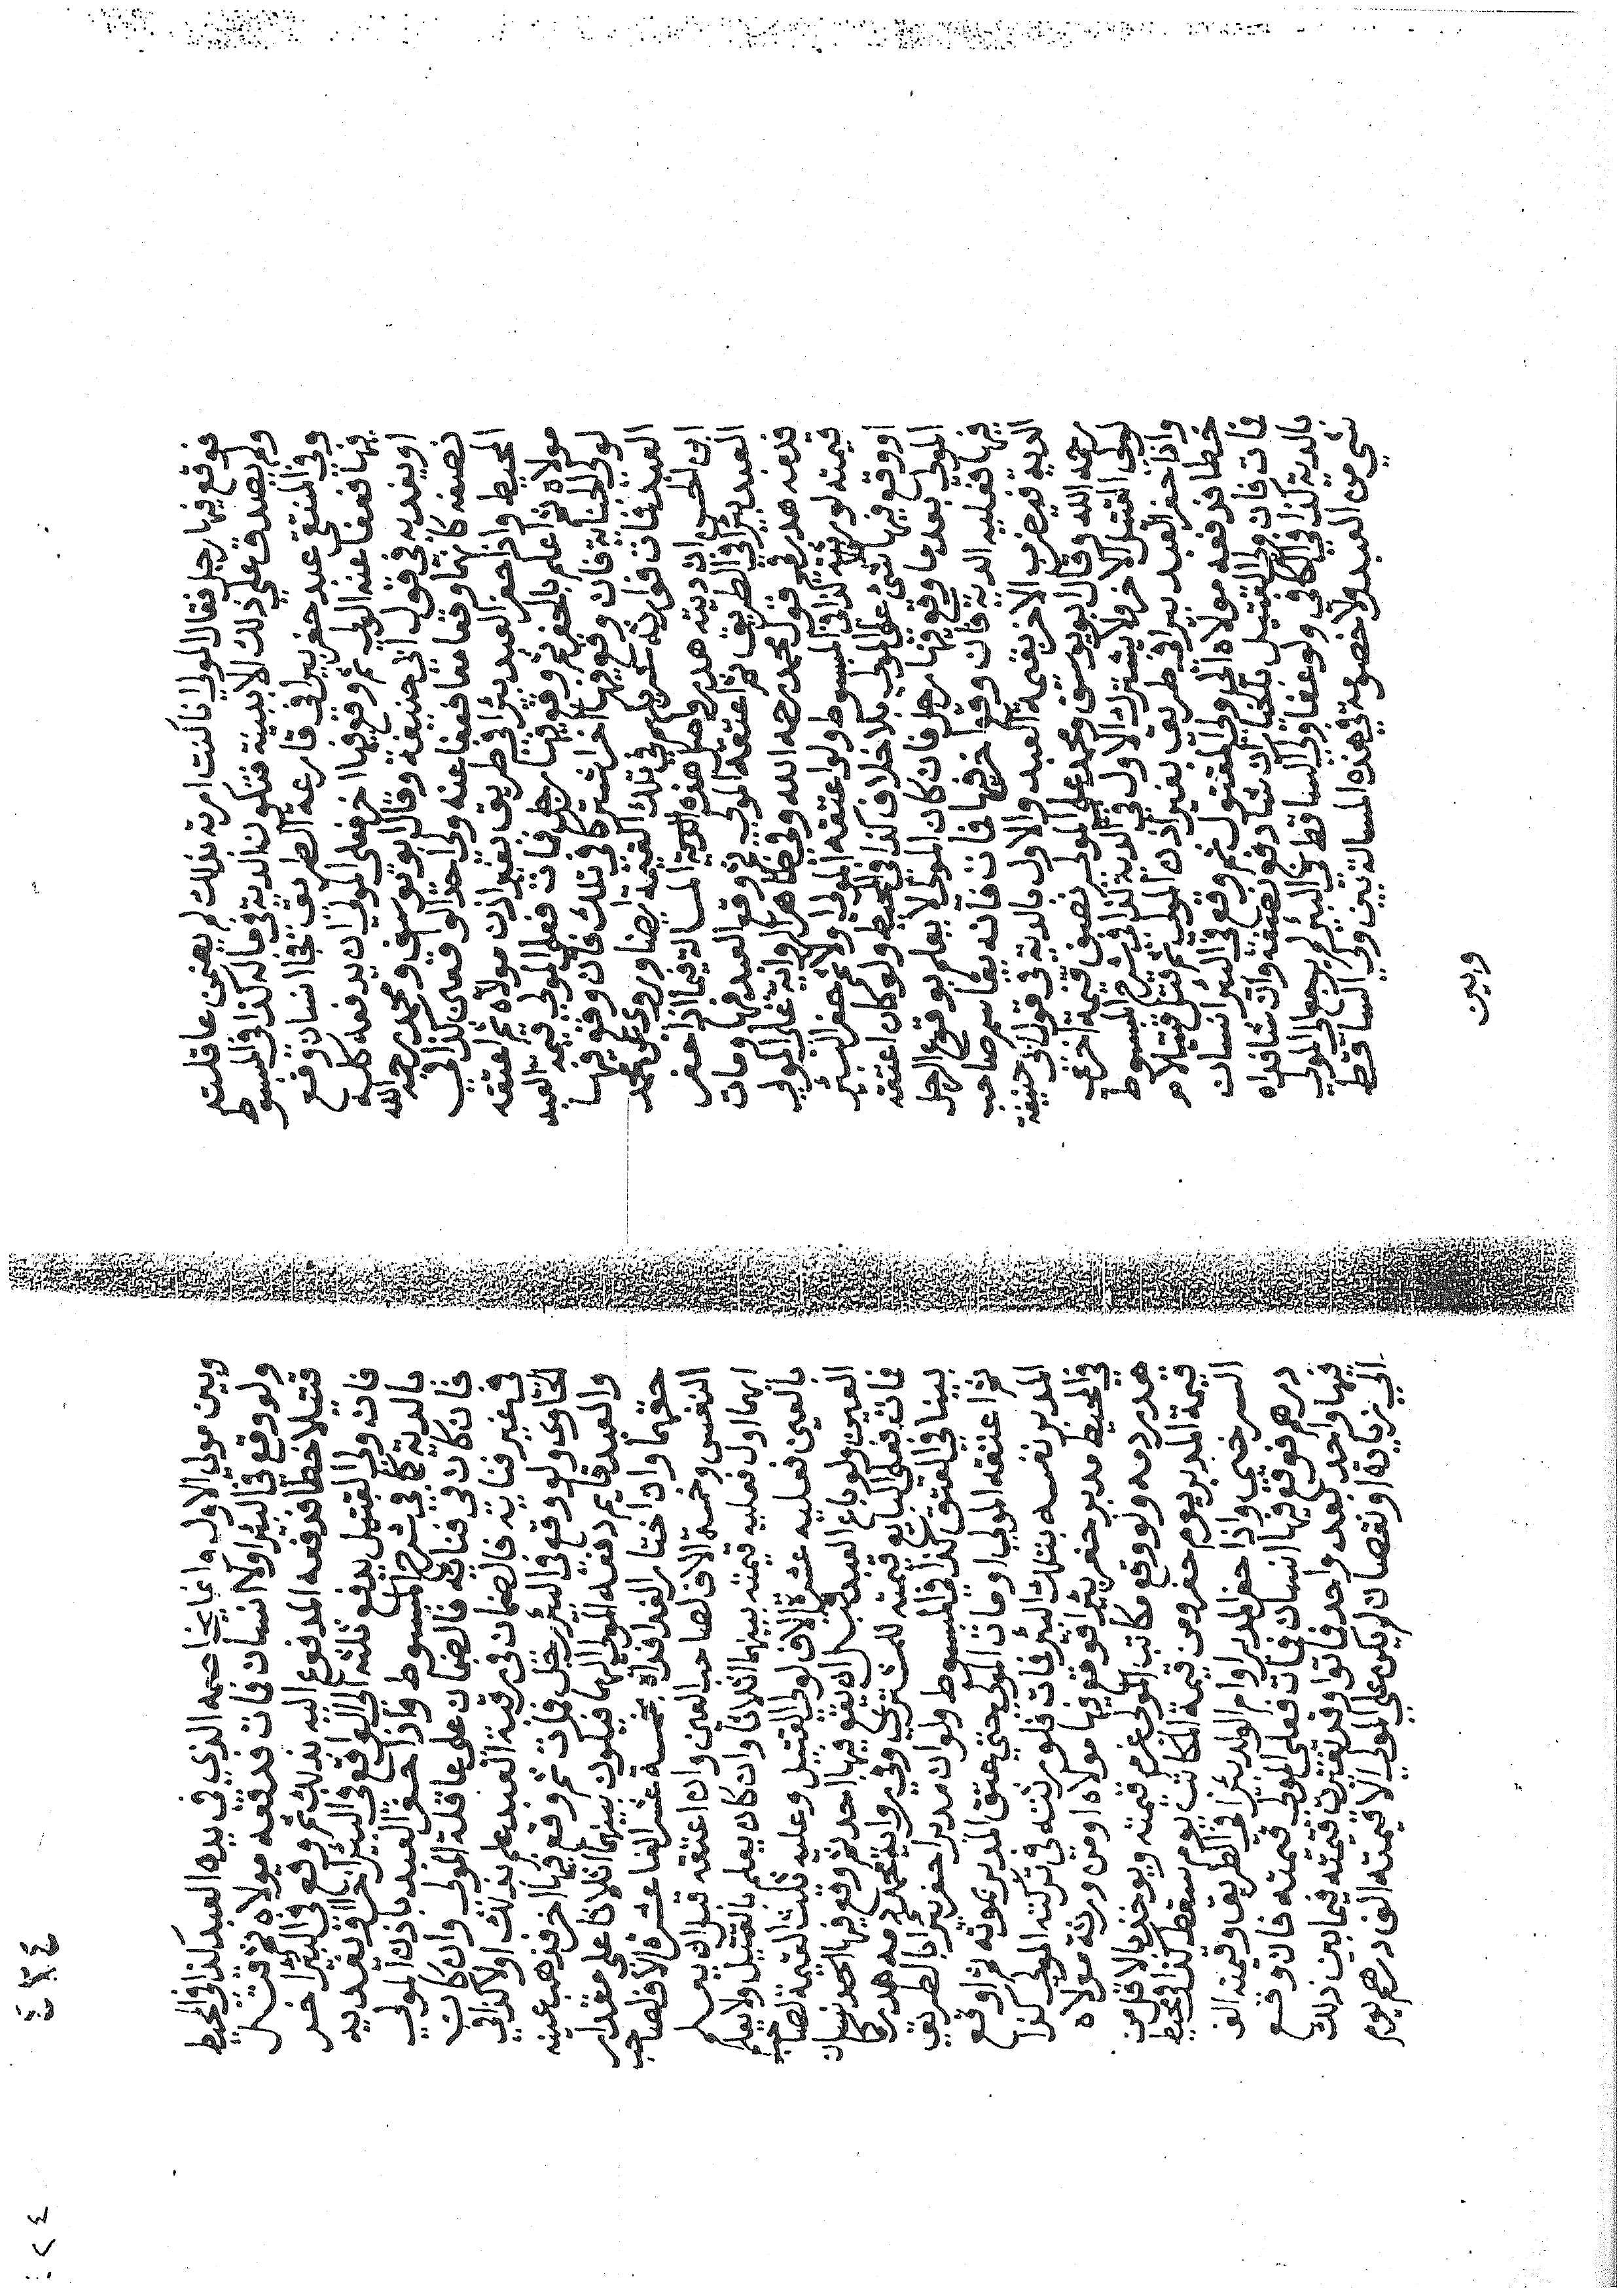 فوقع فيها رجل فقال المولى انا كنت امرته بذلك لم يضمن عاقلته
ولم يصدق على ذلك الا ببينة فتكون الدية في ماله كذا في المبسوط
وفي المنتقى عبد حفر بيرا في قارعة الطريق فجا انسان ووقع
فيها فعفا عنه الولي ثم وقع فيها اخر فعلى المولى ان يدفعه كله
او يفديه في قول ابي حنيفة وقال ابو يوسف ومحمد رحمه الله
نصفه كانهما وقعا معا فعفا عنه ولى احد الواقعين كذا في
المحيط واذا حفر العبد بئرا في طريق بغير اذن مولاه ثم اعتقه
مولاه ثم علم بالحفر ثم وقع فيها رجل فمات فعلى المولى قيمة العبد
لولى الجناية فان وقع فيها اخر اشتركا في تلك فان وقع فيها
العبد فمات فوارثه شريكهم في تلك القيمة ايضا وروي عن محمد
ابن الحسن ان ديته هدر واصل هذه المسالة فيما اذا حفر
العبد بئرا في الطريق ثم اعتقه المولى ثم وقع العبد فيها ومات
فدمه هدر في قول محمد رحمه الله وفي ظاهر الرواية على المولى
قيمته لورثته كذا في المبسوط ولو اعتقه المولى اولا ثم حفر البئر
او وقع فيها شئ على المولى بلا خلاف كذا في المحيط ولو كان اعتقه
المولى بعد ما وقع فيها رجل فان كان المولى لا يعلم بوقوع الرجل
فيها فعليه الدية فان وقع اخر فيها فمات فانه يقاسم صاحب
الدية فيضرب الاخر بقيمة العبد والاول بالدية في قول ابي حنيفة
رحمه الله وقال ابو يوسف ومحمد على المولى نصف قيمة اخرى
لولى القتيل الاخر ولا يشترك الاول في الدية كذا في شرح المبسوط
واذا حفر العبد بيرا في طريق بغير اذن المولى ثم قتل قتيلا
خطا فدفعه مولاه الى ولى المقتول ثم وقع في البير انسان
فمات فان ولى القتيل بالخيار ان شا دفع نصفه وان شا فداه
بالدية كذا في الكافي ولو عفا ولي الساقط في البير لم يرجع الى المولى
شي من العبد ولا خصومة في هذه المسالة بين ولى الساقط
وبين
وبين مولى الاول وانما يخاصمه الذي في يده العبد كذا في المحيط
ولو وقع في البئر اولا انسان فمات فدفعه مولاه ثم قتل
قتيلا خطا فدفعه المدفوع اليه بذلك ثم وقع في البير اخر
فان ولى القتيل يدفع ثلثه الى الواقع في البئر اخرا او يفديه
بالدية كذا في شرح المبسوط واذا حفر العبد باذن المولى
فان كان في فنائه فالضمان على عاقلة المولى وان كان
في غير فنايه فالضمان في رقبة العبد علم بذلك اولا كذا في
الحاوى ولو وقع في البئر رجل فمات ثم وقع فيها اخر فذهب عينه
والعبد قايم دفعه المولى اليهما فيكون بينهما اثلاثا على مقدار
حقهما وان اختار الفدا فداه بخمسة عشر الفا عشرة الاف لصاحب
النفس وخمسة الاف لصاحب العين وان اعتقه قبل ان يعلم
بهما اول فعليه قيمته بينهما اثلاثا وان كان يعلم بالقتيل ولا يعلم
بالعين فعليه عشرة الاف لولى القتيل وعليه ثلث القيمة لصاحب
العين ولو باع العبد قبل ان يقع فيها احد ثم وقع فيها انسان
فمات فعلى البايع قيمته للمشتري وفي رواية دمه هدر كما
بينا في العتق كذا في المبسوط ولو ان مدبرا حفر بئرا بالطريق
ثم اعتقه المولى او مات المولى حتى عتق المدبر بموته ثم اوقع
المدبر نفسه بتلك البئر فمات فلورثته في تركته المولى كذا
في المحيط مدبر حفر بئرا فوقع فيها مولاه او من ورثة مولاه
هدر دمه ولو وقع مكاتب المولى غرم قيمته ويوخذ بالاقل من
قيمة المدبر يوم حفر ومن قيمة المكاتب يوم سقط كذا في محيط
السرخسي واذا حفر المدبر او ام الولد بئرا في الطريق وقيمته الف
درهم فوقع فيها انسان فمات فعلى المولى قيمته فان وقع
فيها واحد بعد واحد فماتوا وقد تغيرت قيمته فيما بين ذلك
الى زيادة او نقصان لم يكن على المولى الا قيمته الف درهم يوم